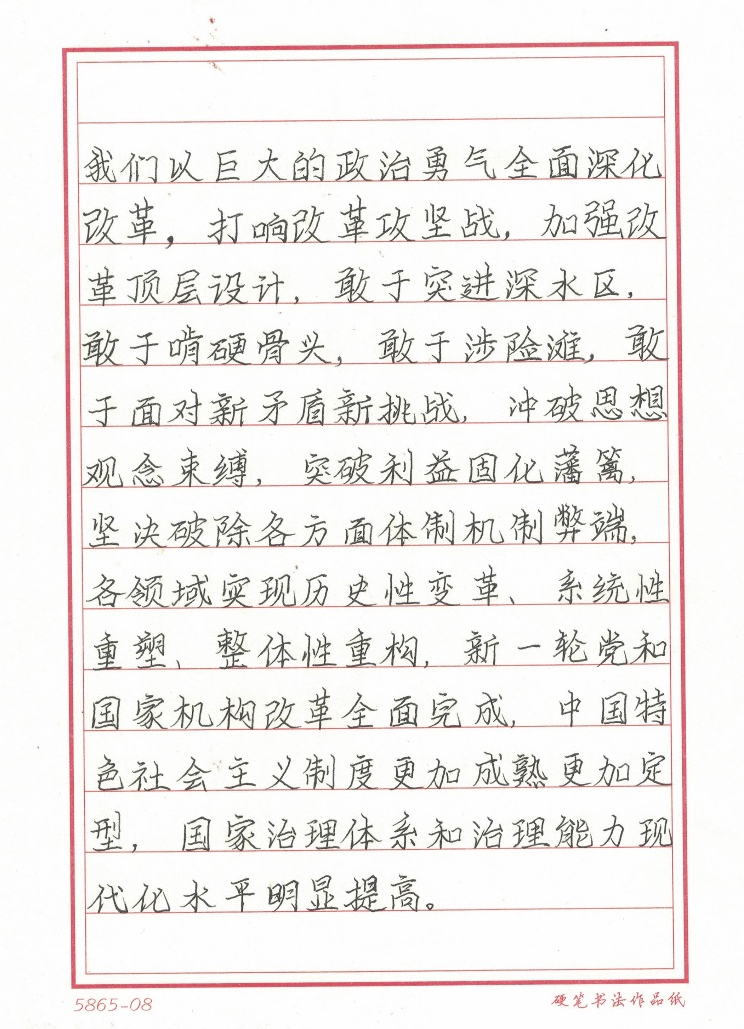 我们以巨大的政治勇气全面深化
改革，打响改革攻坚战，加强改
革顶层设计，敢于突进深水区，
敢于啃硬骨头，敢于涉险滩，敢
于面对新矛盾新挑战，冲破思想
观念束缚，突破利益固化藩篱，
坚决破除各方面体制机制弊端，
各领域实现历史性变革、系统性
重塑、整体性重构，新一轮党和
国家机构改革全面完成，中国特
色社会主义制度更加成熟更加定
型，国家治理体系和治理能力现
代化水平明显提高。
5865-08
硬笔书法作品纸